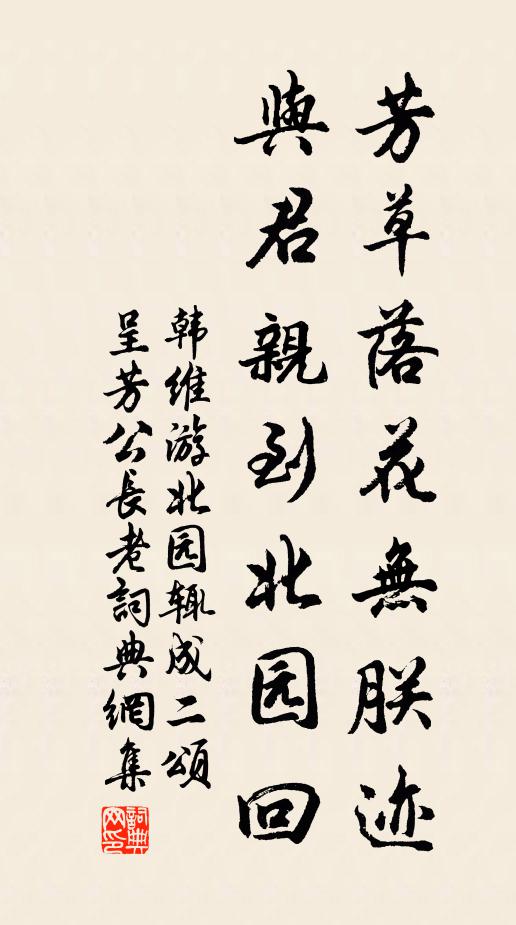 芳草落花無朕迹
與君親到北园回
韩维游北园辄成二頌
呈芳公長老詞典網集
詞典网印